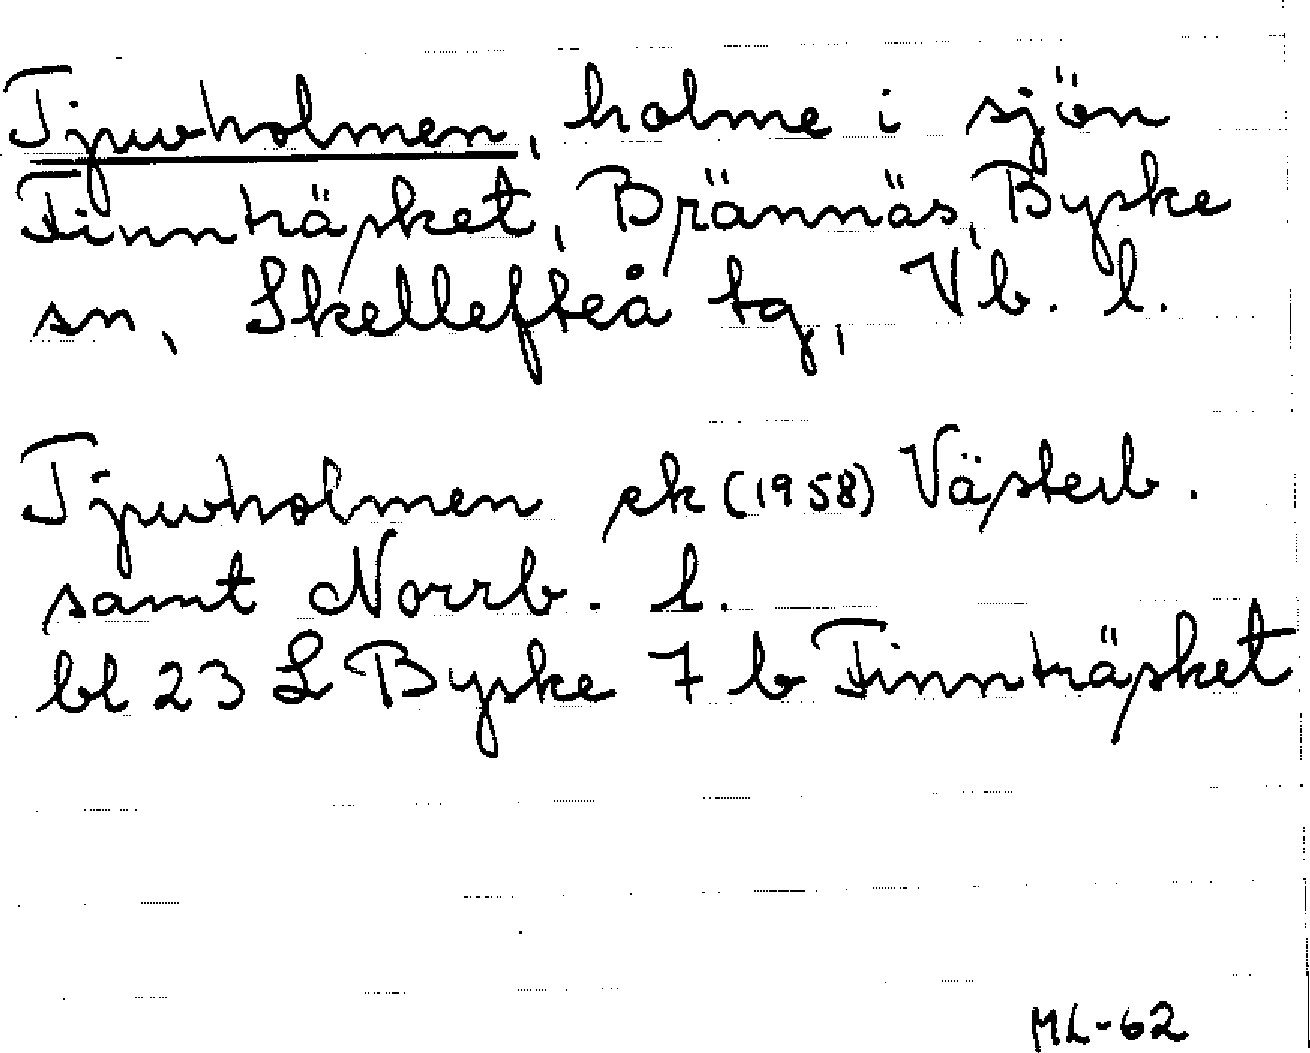 Tjuvholmen, holme i sjön
Finnträsket, Brännäs, Byske
sn, Skellefteå tg, Vb. l.
Tjuvholmen ek (1958) Västerb.
samt Norrb. l.
bl 23 L Byske 7 b Finnträsket
ML-62